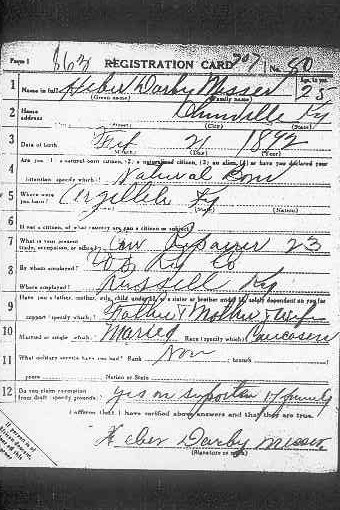 Form 1 863 REGISTRATION CARD 707 No. 80
1 Name in full Heber Darby Messer Age, in yrs. 25
(Given name) (Family name)
2 Home address Ky
(City) (State)
3 Date of birth Feb 2 1892
(Month) (Day) (Year)
4 Are you (1) a natural-born citizen, (2) a naturalized citizen, (3) an alien, (4) or have you declared your
intention specify which)? Natural Born
5 Where were you born? Argillite Ky
(Town) (State) (Nation)
6 If not a citizen, of what country are you a citizen or subject?
7 What is your present trade, occupation, or office? Car Repairer 23
8 By whom employed? C & O Ry Co
Where employed? Russell Ky
9 Have you a father, mother, wife, child under 12, or a sister or brother under 12, solely dependent on you for
support (specify which)? Father & Mother & Wife
10 Married or single (which)? Married Race (specify which)? Caucasian
11 What military service have you had? Rank None ; branch
years ; Nation or State
12 Do you claim exemption from draft (specify grounds)? yes on support of family
I affirm that I have verified above answers and that they are true.
Heber Darby Messer
(Signature or mark)
If person is of